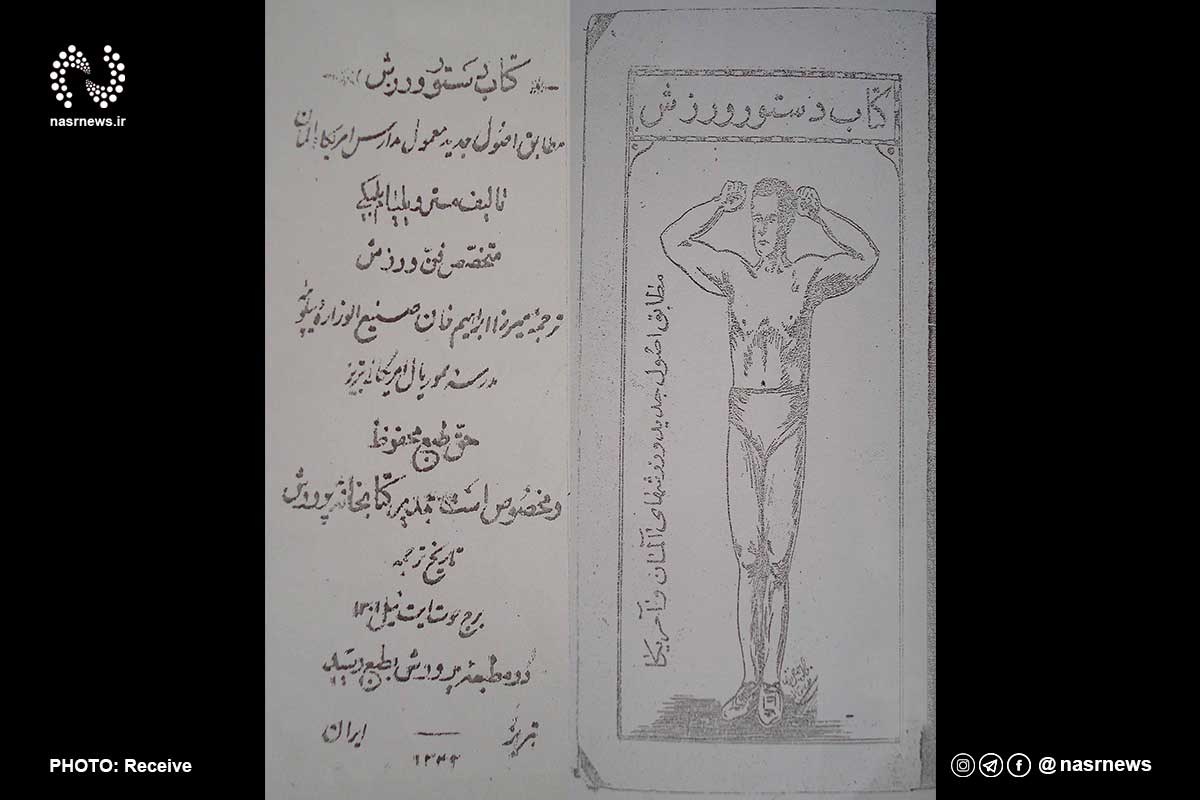 nasrnews.ir
کتاب دستور ورزش
مطابق اصول جدید معمول مدارس امریکا المان
تالیف مستر ویلیام
متخصص فن ورزش
ترجمهٔ میرزا ابراهیم خان صنیع الوزاره
مدرسه موریال امریکائی تبریز
حق طبع محفوظ
و مخصوص است بمدیر کتابخانه پرورش
تاریخ ترجمه
برج حوت ایت ئیل ۱۳۰۱
در مطبعه پرورش بطبع رسید
تبریز — ایران
کتاب دستور ورزش
مطابق اصول جدید ورزشهای آلمان و آمریکا
PHOTO: Receive
@nasrnews